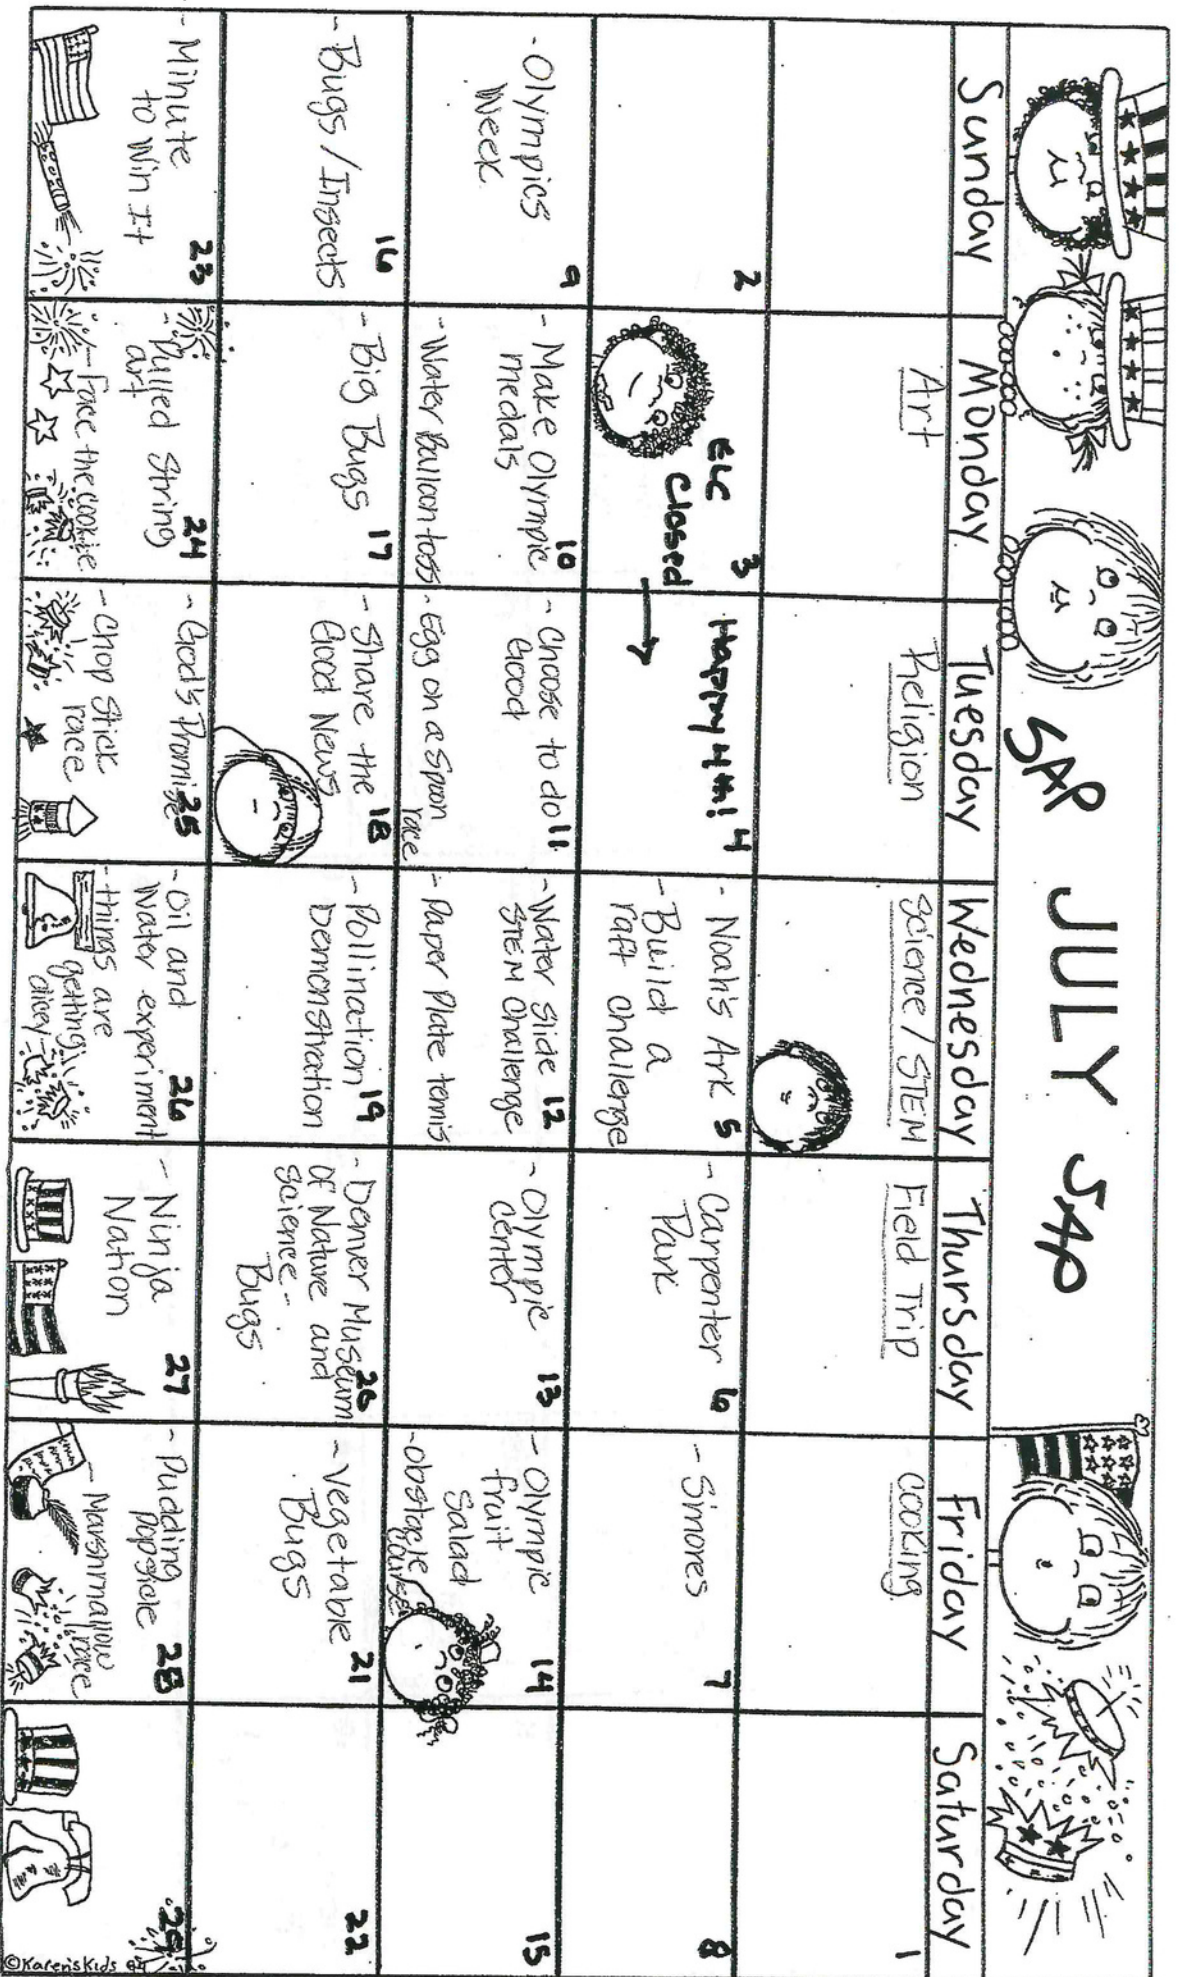 SAP JULY SAP
Sunday Monday Tuesday Wednesday Thursday Friday Saturday
Art
Religion
Science / STEM
Field Trip
Cooking
1
2
3
ELC
Closed →
4
Happy 4th!
5
- Noah's Ark
- Build a
raft challenge
6
- Carpenter
Park
7
- S'mores
8
9
- Olympics
Week
10
- Make Olympic
medals
- Water Balloon toss
11
- Choose to do
Good
- Egg on a Spoon
race
12
- Water Slide
STEM Challenge
- Paper Plate tennis
13
- Olympic
Center
14
- Olympic
fruit
Salad
- obstacle
course
15
16
- Bugs / Insects
17
- Big Bugs
18
- Share the
Good News
19
- Pollination
Demonstration
20
- Denver Museum
of Nature and
Science -
Bugs
21
- Vegetable
Bugs
22
23
- Minute
to Win It
24
- Pulled String
art
- Face the cookie
25
- God's Promise
- Chop Stick
race
26
- Oil and
Water experiment
- things are
getting
dicey
27
- Ninja
Nation
28
- Pudding
Popsicle
- Marshmallow
race
29
©Karen'sKids